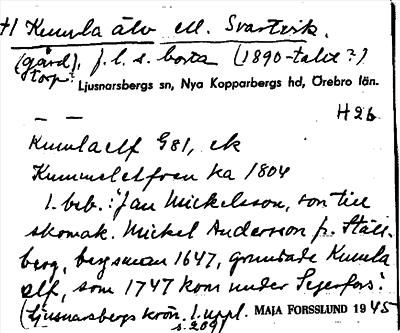 +1 Kumla älv ell. Svartvik.
(gård), f. l. s. borta (1890-talet?)
torp?
Ljusnarsbergs sn, Nya Kopparbergs hd, Örebro län.
H26
— —
Kumlaelf G81, ek
Kummelelfven ka 1804
1. beb.: "Jan Mickelsson, son till
skomak. Mickel Andersson fr. Ställ-
berg, bergsman 1647, grundade Kumla
elf, som 1747 kom under Segerfors."
(Ljusnarsbergs krön. 1. uppl.
s. 209)
MAJA FORSSLUND 1945